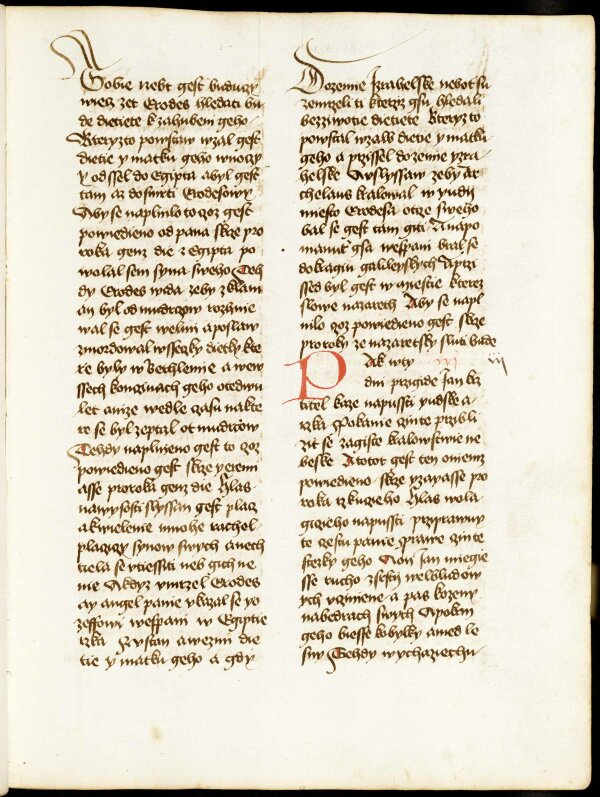 Tobie nebt gest buducy
wiecz zet Erodes hledati bu
de dietiete k zahubem geho
Kteryzto powstaw wzal gest
dietie y matku geho w noczy
y odssel do Egipta a byl gest
tam az do smrti Erodesowy
Aby se naplnilo to coz gest
powiedieno od pana skrze pro
roka genz die z Egipta po
wolal sem syna sweho Teh
dy Erodes wida zeby zklam
an byl od mudrcow rozhnie
wal se gest welmi a poslaw
zmordowal wssecky dietky kte
re byly w Bethlemie a wew
ssech konczinach geho ote dwu
let a nize wedle czasu na kte
re se byl zeptal ot mudrcow
Tehdy naplnieno gest to coz
powiedieno gest skrze yeremi
asse proroka genz die Hlas
na wysosti slyssan gest placz
a kwielenie mnohe rachel
placzyczy synow swych a nech
tiela se vtiessiti neb gich ne
nie A kdyz vmrzel Erodes
ay angel panie vkazal se yo
zeffowi we spani w Egiptie
rzka Wstan a wezmi die
tie y matku geho a gdy
Do zemie Izrahelske nebot su
zemrzeli ti kterzyz gsu hledali
bezziwotie dietiete Kteryzto
powstal wzalw dietie y matku
geho a przissel do zemie yzra
helske A vslyssaw zeby Ar
chelaus kralowal w yudii
miesto Erodesa otcze sweho
bal se gest tam giti A napo
manut gsa we spani bral se
do kragin galileyskych A przi
ssed byl gest w miestie kterez
slowe nazareth Aby se napl
nilo coz powiedieno gest skrze
proroky ze nazaretsky sluti bude
Pak w ty III iij
dni przigide Jan krz
titel karze na pussti yudske a
rzka Pokanie czinte przibli
zit se zagiste kralowstwie ne
beske A totot gest ten o niemz
powiedieno skrze yzayasse pro
roka rzkuczieho Hlas wola
gicieho na pussti przyprawuy
te cestu panie prawe czinte
stezky geho A on Jan miegie
sse rucho z srsti welbludow
ych vczinene a pas kozeny
na bedrach swych A pokrm
geho biesse kobylky a med le
sny Tehdy wychaziechu